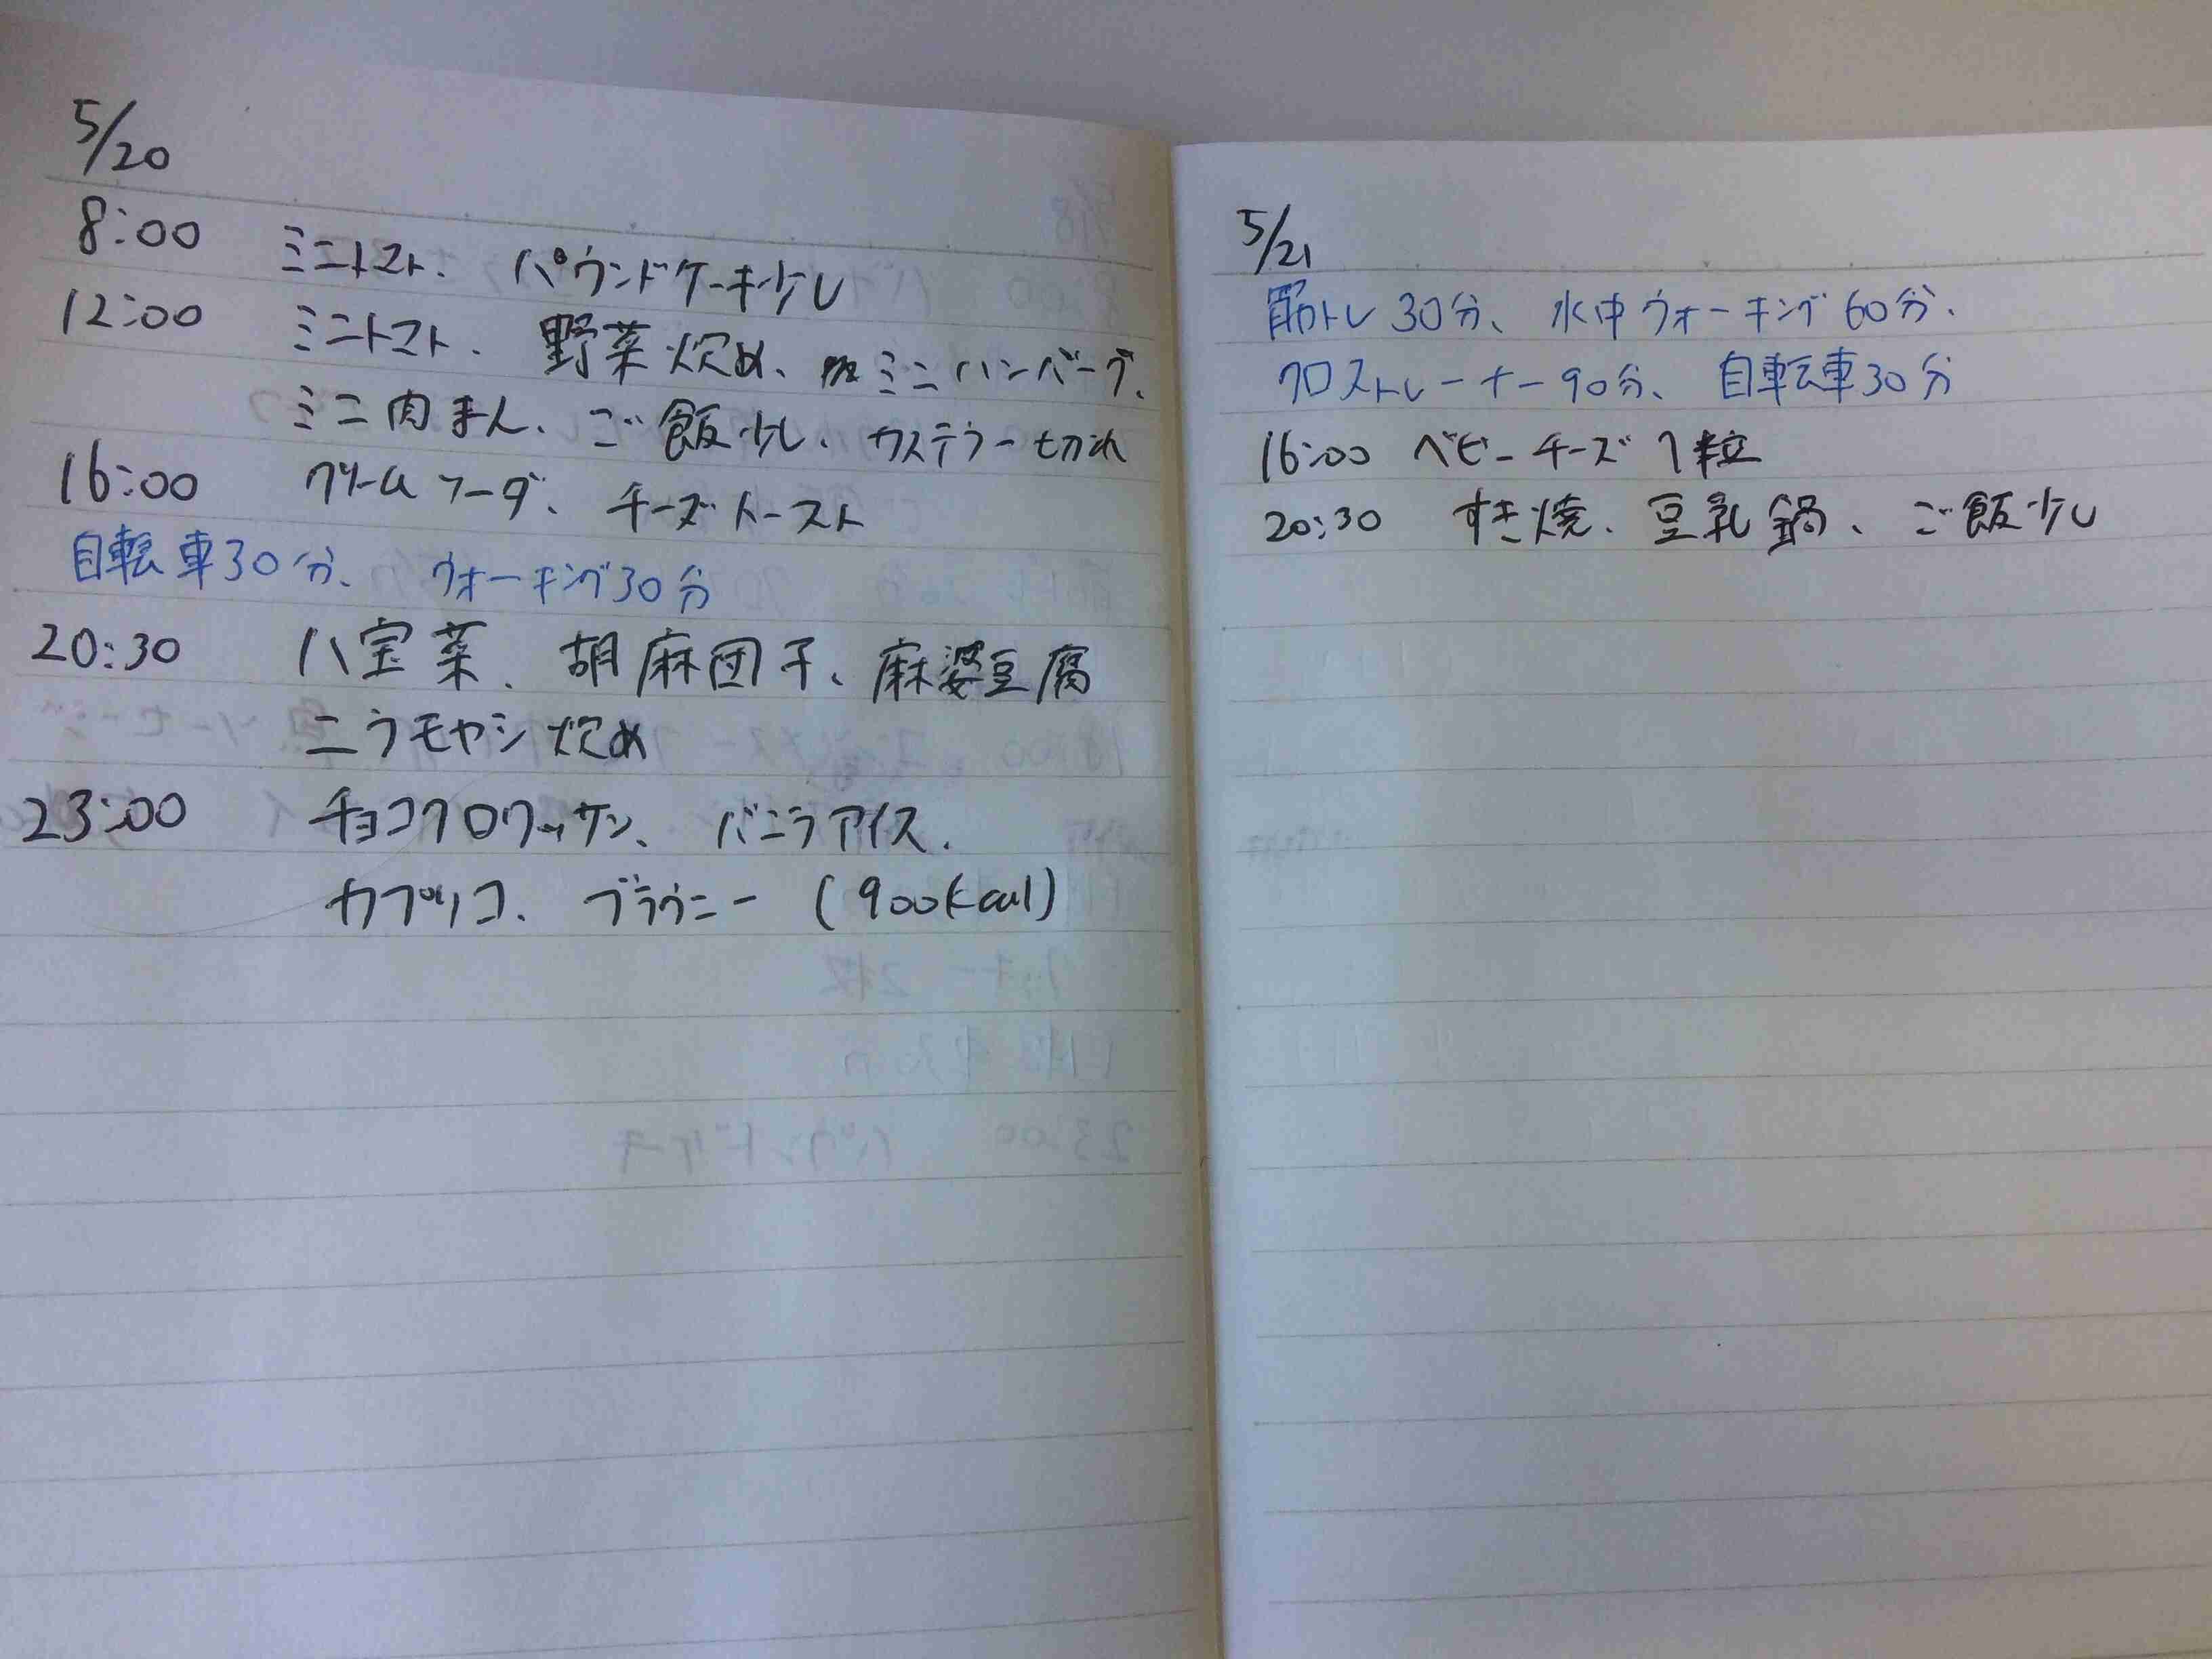 5/20
8:00 ミニトマト、パウンドケーキ少し
12:00 ミニトマト、野菜炊め、ミニハンバーグ、
ミニ肉まん、ご飯少し、カステラ一切れ
16:00 クリームソーダ、チーズトースト
自転車30分、ウォーキング30分
20:30 八宝菜、胡麻団子、麻婆豆腐
ニラモヤシ炊め
23:00 チョコクロワッサン、バニラアイス、
カプリコ、ブラウニー (900kcal)
5/21
筋トレ30分、水中ウォーキング60分、
クロストレーナー90分、自転車30分
16:00 ベビーチーズ1粒
20:30 すき焼、豆乳鍋、ご飯少し